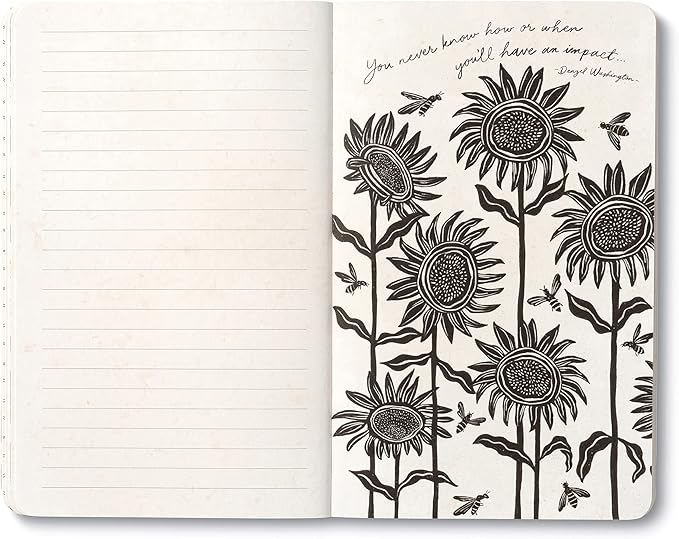 You never know how or when
you'll have an impact...
-Denzel Washington-